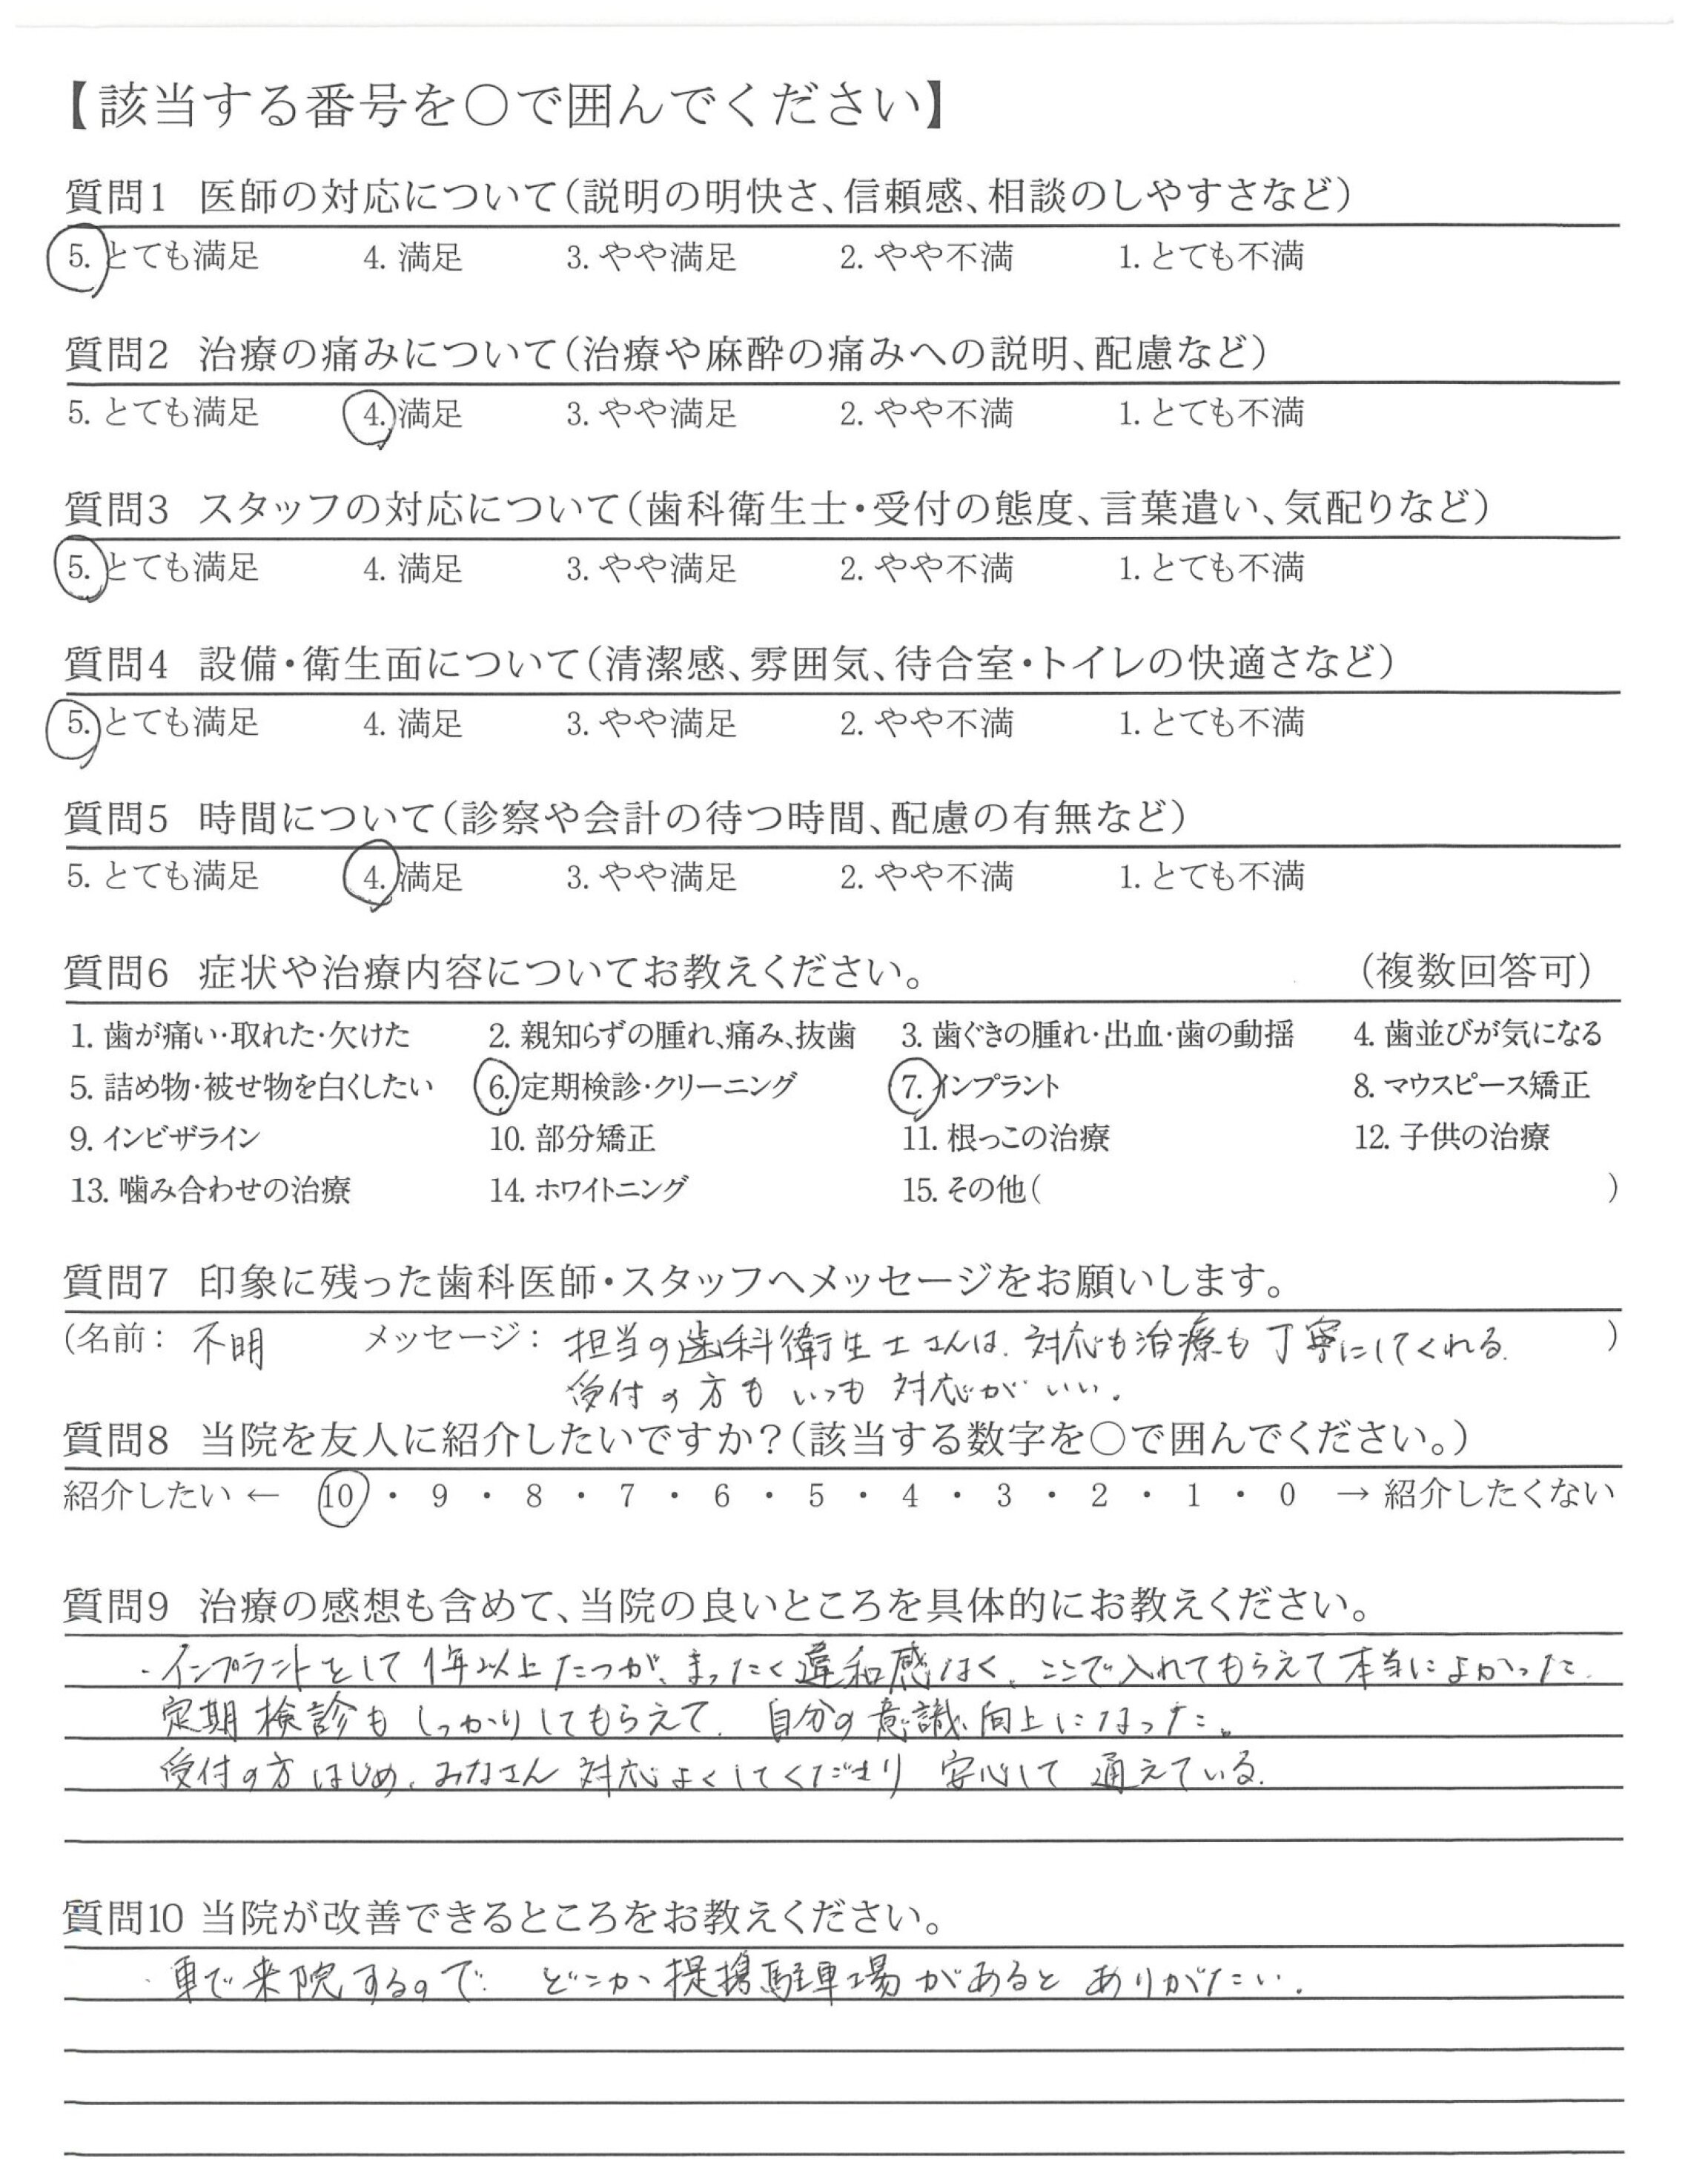 【該当する番号を○で囲んでください】
質問1 医師の対応について（説明の明快さ、信頼感、相談のしやすさなど）
5. とても満足 4. 満足 3. やや満足 2. やや不満 1. とても不満
質問2 治療の痛みについて（治療や麻酔の痛みへの説明、配慮など）
5. とても満足 4. 満足 3. やや満足 2. やや不満 1. とても不満
質問3 スタッフの対応について（歯科衛生士・受付の態度、言葉遣い、気配りなど）
5. とても満足 4. 満足 3. やや満足 2. やや不満 1. とても不満
質問4 設備・衛生面について（清潔感、雰囲気、待合室・トイレの快適さなど）
5. とても満足 4. 満足 3. やや満足 2. やや不満 1. とても不満
質問5 時間について（診察や会計の待つ時間、配慮の有無など）
5. とても満足 4. 満足 3. やや満足 2. やや不満 1. とても不満
質問6 症状や治療内容についてお教えください。 （複数回答可）
1. 歯が痛い・取れた・欠けた 2. 親知らずの腫れ、痛み、抜歯 3. 歯ぐきの腫れ・出血・歯の動揺 4. 歯並びが気になる
5. 詰め物・被せ物を白くしたい 6. 定期検診・クリーニング 7. インプラント 8. マウスピース矯正
9. インビザライン 10. 部分矯正 11. 根っこの治療 12. 子供の治療
13. 噛み合わせの治療 14. ホワイトニング 15. その他（ ）
質問7 印象に残った歯科医師・スタッフへメッセージをお願いします。
（名前： 不明 メッセージ： 担当の歯科衛生士さんは、対応も治療も丁寧にしてくれる。 ）
受付の方もいつも対応がいい。
質問8 当院を友人に紹介したいですか？（該当する数字を○で囲んでください。）
紹介したい ← 10 ・ 9 ・ 8 ・ 7 ・ 6 ・ 5 ・ 4 ・ 3 ・ 2 ・ 1 ・ 0 → 紹介したくない
質問9 治療の感想も含めて、当院の良いところを具体的にお教えください。
・インプラントをして1年以上たつが、まったく違和感はく、ここで入れてもらえて本当によかった。
定期検診もしっかりしてもらえて、自分の意識向上になった。
受付の方はじめ、みなさん対応よくしてくださり 安心して通えている。
質問10 当院が改善できるところをお教えください。
・車で来院するので、どこか提携駐車場があるとありがたい。